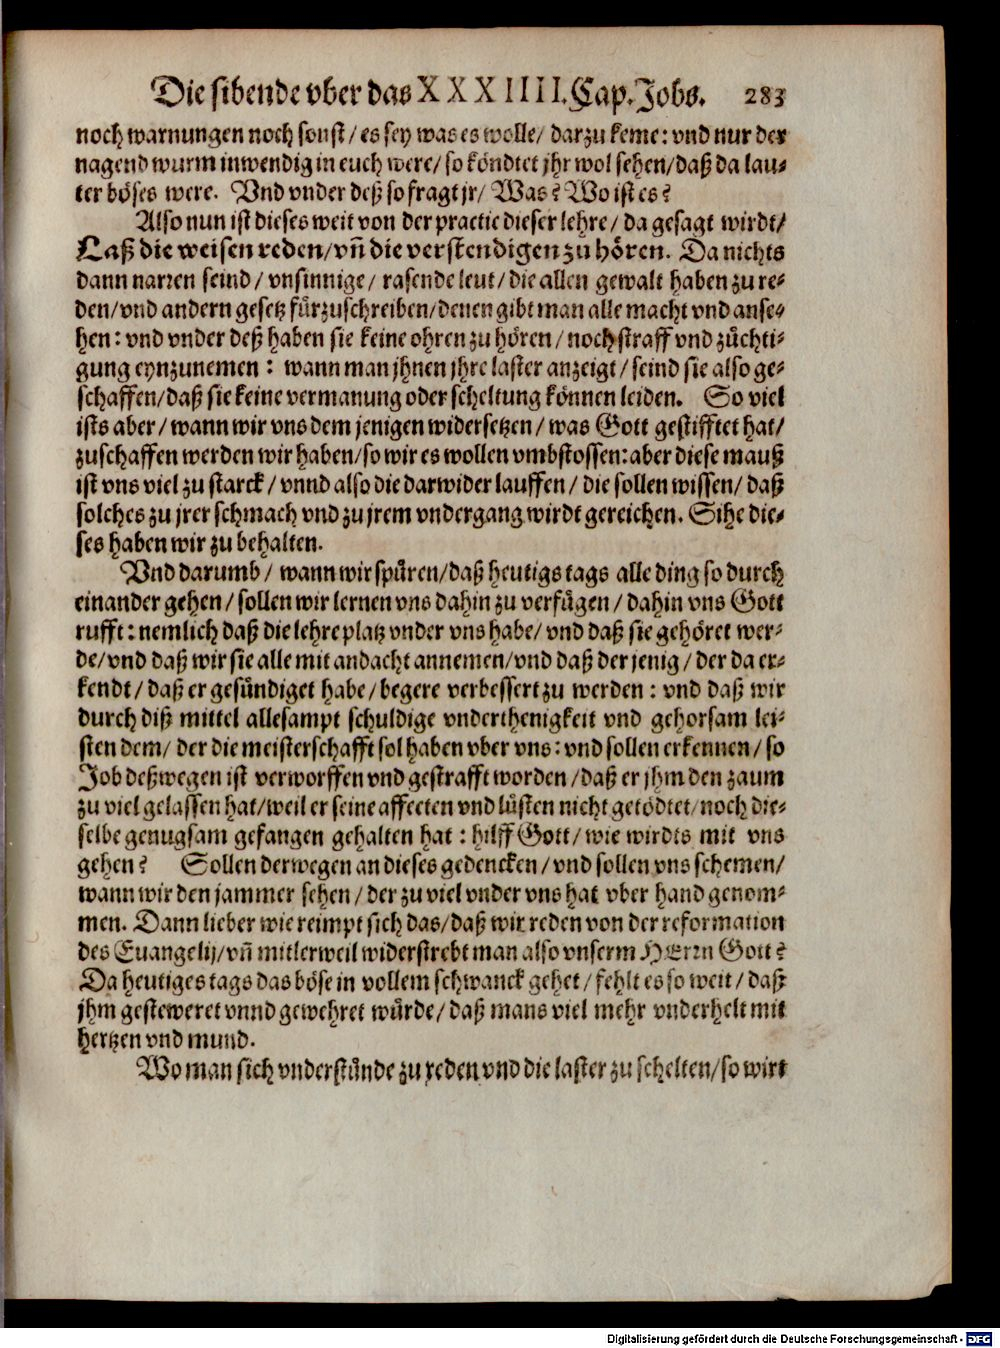 Die sibende vber das XXXIIII. Cap. Jobs. 283
noch warnungen noch sonst / es sey was es wolle / darzu keme: vnd nur der
nagend wurm inwendig in euch were / so köndtet jhr wol sehen / daß da lau-
ter böses were. Vnd vnder deß so fragt jr / Was? Wo ist es?
Also nun ist dieses weit von der practic dieser lehre / da gesagt wirdt /
Laß die weisen reden / vn̄ die verstendigen zu hören. Da nichts
dann narren seind / vnsinnige / rasende leut / die allen gewalt haben zu re-
den / vnd andern gesetz fürzuschreiben / denen gibt man alle macht vnd anse-
hen: vnd vnder deß haben sie keine ohren zu hören / noch straff vnd züchti-
gung eynzunemen: wann man jhnen jhre laster anzeigt / seind sie also ge-
schaffen / daß sie keine vermanung oder scheltung können leiden. So viel
ists aber / wann wir vns dem jenigen widersetzen / was Gott gestifftet hat /
zuschaffen werden wir haben / so wir es wollen vmbstossen: aber diese mauß
ist vns viel zu starck / vnnd also die darwider lauffen / die sollen wissen / daß
solches zu jrer schmach vnd zu jrem vndergang wirdt gereichen. Sihe die-
ses haben wir zu behalten.
Vnd darumb / wann wir spüren / daß heutigs tags alle ding so durch
einander gehen / sollen wir lernen vns dahin zu verfügen / dahin vns Gott
rufft: nemlich daß die lehre platz vnder vns habe / vnd daß sie gehöret wer-
de / vnd daß wir sie alle mit andacht annemen / vnd daß der jenig / der da er-
kendt / daß er gesündiget habe / begere verbessert zu werden: vnd daß wir
durch diß mittel allesampt schuldige vnderthenigkeit vnd gehorsam lei-
sten dem / der die meisterschafft sol haben vber vns: vnd sollen erkennen / so
Job deßwegen ist verworffen vnd gestrafft worden / daß er jhm den zaum
zu viel gelassen hat / weil er seine affecten vnd lüsten nicht getödtet / noch die-
selbe genugsam gefangen gehalten hat: hilff Gott / wie wirdts mit vns
gehen? Sollen derwegen an dieses gedencken / vnd sollen vns schemen /
wann wir den jammer sehen / der zu viel vnder vns hat vber hand genom-
men. Dann lieber wie reimpt sich das / daß wir reden von der reformation
des Euangelij / vn̄ mitlerweil widerstrebt man also vnserm HErrn Gott?
Da heutiges tags das böse in vollem schwanck gehet / fehlt es so weit / daß
jhm gesteweret vnnd gewehret würde / daß mans viel mehr vnderhelt mit
hertzen vnd mund.
Wo man sich vnderstünde zu reden vnd die laster zu schelten / so wirt
Digitalisierung gefördert durch die Deutsche Forschungsgemeinschaft - DFG